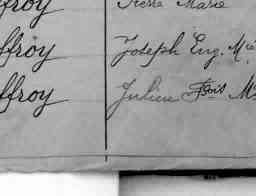 ffroy Marie
ffroy Joseph Eug. Mie
ffroy Julien Fois M